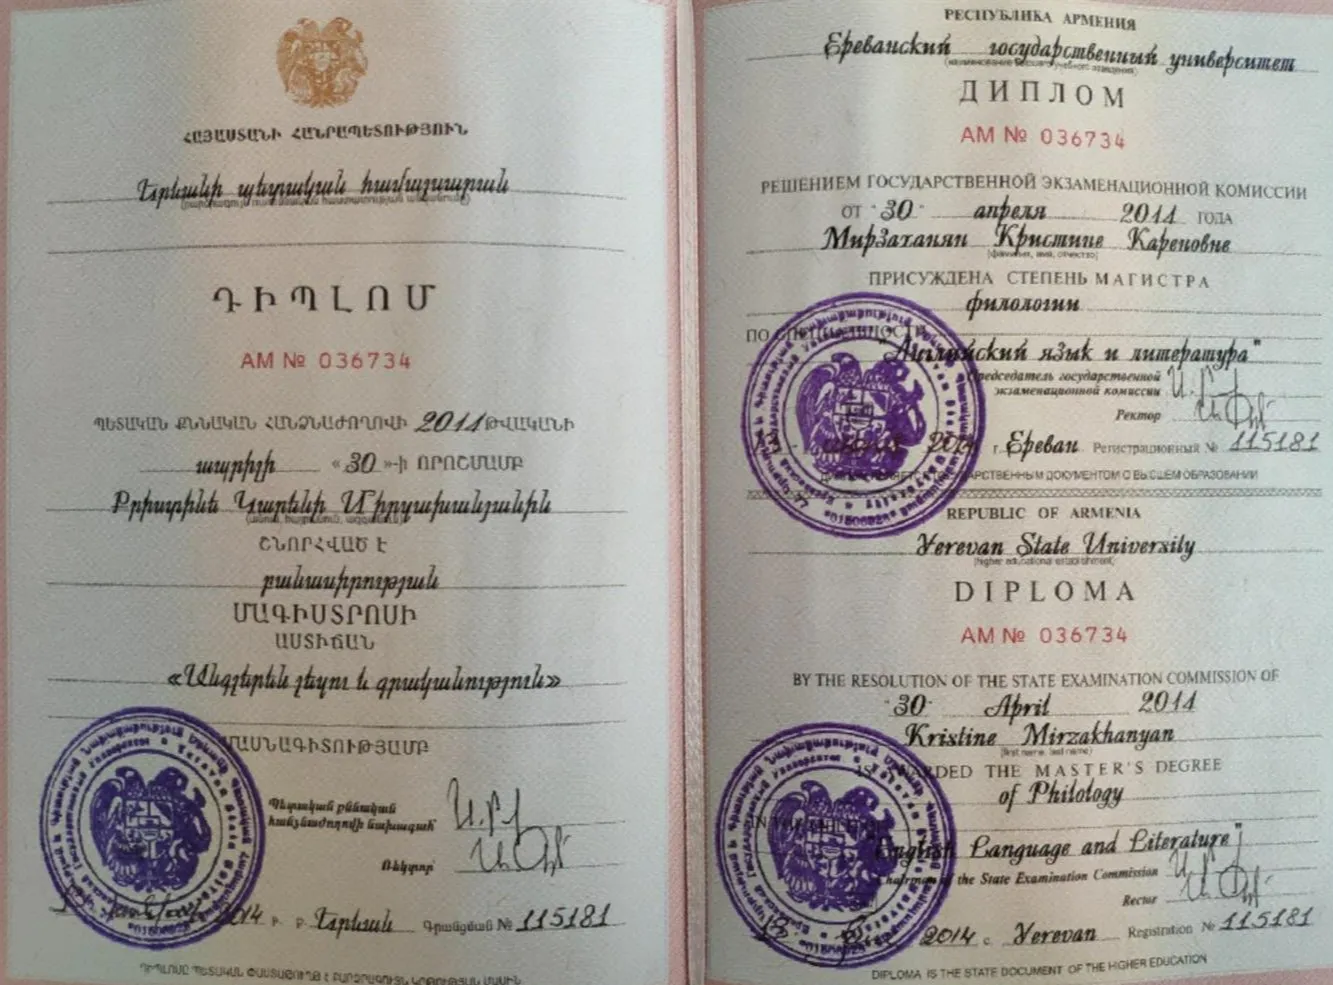 ՀԱՅԱՍՏԱՆԻ ՀԱՆՐԱՊԵՏՈՒԹՅՈՒՆ
Երևանի պետական համալսարան
ԴԻՊԼՈՄ
AM № 036734
ՊԵՏԱԿԱՆ ՔՆՆԱԿԱՆ ՀԱՆՁՆԱԺՈՂՈՎԻ 2014 ԹՎԱԿԱՆԻ
ապրիլի «30»-ի ՈՐՈՇՄԱՄԲ
Քրիստինե Կարենի Միրզախանյանին
ՇՆՈՐՀՎԱԾ Է
բանասիրության
ՄԱԳԻՍՏՐՈՍԻ
ԱՍՏԻՃԱՆ
«Անգլերեն լեզու և գրականություն»
ՄԱՍՆԱԳԻՏՈՒԹՅԱՄԲ
Պետական քննական
հանձնաժողովի նախագահ
Ռեկտոր
2014 թ. ք. Երևան Գրանցման № 115181
ԴԻՊԼՈՄԸ ՊԵՏԱԿԱՆ ՓԱՍՏԱԹՈՒՂԹ Է ԲԱՐՁՐԱԳՈՒՅՆ ԿՐԹՈՒԹՅԱՆ ՄԱՍԻՆ
РЕСПУБЛИКА АРМЕНИЯ
Ереванский государственный университет
(наименование высшего учебного заведения)
ДИПЛОМ
AM № 036734
РЕШЕНИЕМ ГОСУДАРСТВЕННОЙ ЭКЗАМЕНАЦИОННОЙ КОМИССИИ
ОТ "30" апреля 2014 ГОДА
Мирзаханян Кристине Кареновне
(фамилия, имя, отчество)
ПРИСУЖДЕНА СТЕПЕНЬ МАГИСТРА
филологии
ПО СПЕЦИАЛЬНОСТИ
"Английский язык и литература"
Председатель государственной
экзаменационной комиссии
Ректор
2014 г. Ереван Регистрационный № 115181
ГОСУДАРСТВЕННЫМ ДОКУМЕНТОМ О ВЫСШЕМ ОБРАЗОВАНИИ
REPUBLIC OF ARMENIA
Yerevan State University
(higher educational establishment)
DIPLOMA
AM № 036734
BY THE RESOLUTION OF THE STATE EXAMINATION COMMISSION OF
"30" April 2014
Kristine Mirzakhanyan
(first name, last name)
IS AWARDED THE MASTER'S DEGREE
of Philology
English Language and Literature"
Chairman of the State Examination Commission
Rector
2014 c. Yerevan Registration № 115181
DIPLOMA IS THE STATE DOCUMENT OF THE HIGHER EDUCATION